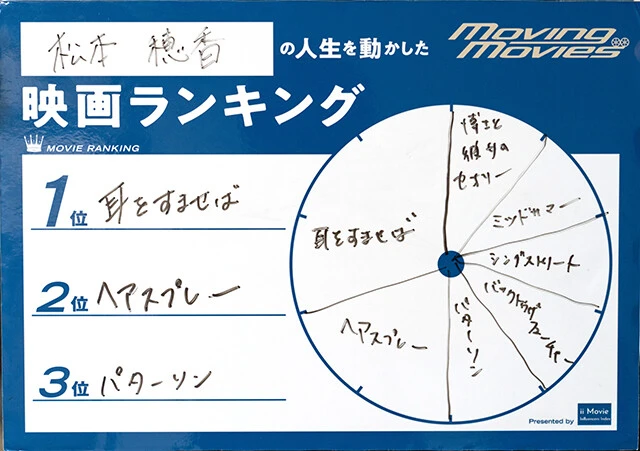 松本 穂香 の人生を動かした
Moving
Movies
映画ランキング
MOVIE RANKING
1位 耳をすませば
2位 ヘアスプレー
3位 パターソン
博士と
彼女の
セオリー
ミッドサマー
シングストリート
バックトゥザ
フューチャー
パターソン
ヘアスプレー
耳をすませば
Presented by
ii Movie